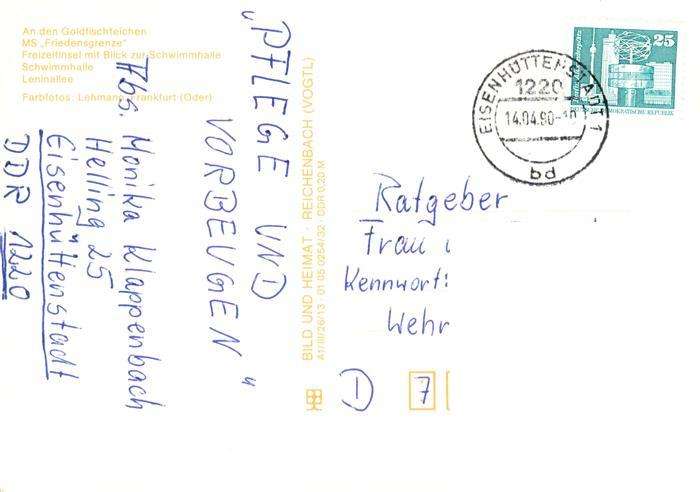 An den Goldfischteichen
MS „Friedensgrenze"
Freizeitinsel mit Blick zur Schwimmhalle
Schwimmhalle
Leninallee
Farbfotos: Lehmann, Frankfurt (Oder)
„PFLEGE UND
VORBEUGEN"
Abs. Monika Klappenbach
Helling 25
Eisenhüttenstadt
DDR 1220
BILD UND HEIMAT · REICHENBACH (VOGTL)
A1/III/26/13 · 01 05 0254/32 · DDR 0,20 M
EISENHÜTTENSTADT 1
1220
14.04.90-10
bd
25
DEMOKRATISCHE REPUBLIK
Ratgeber
Frau
Kennwort:
Wehr
I
7